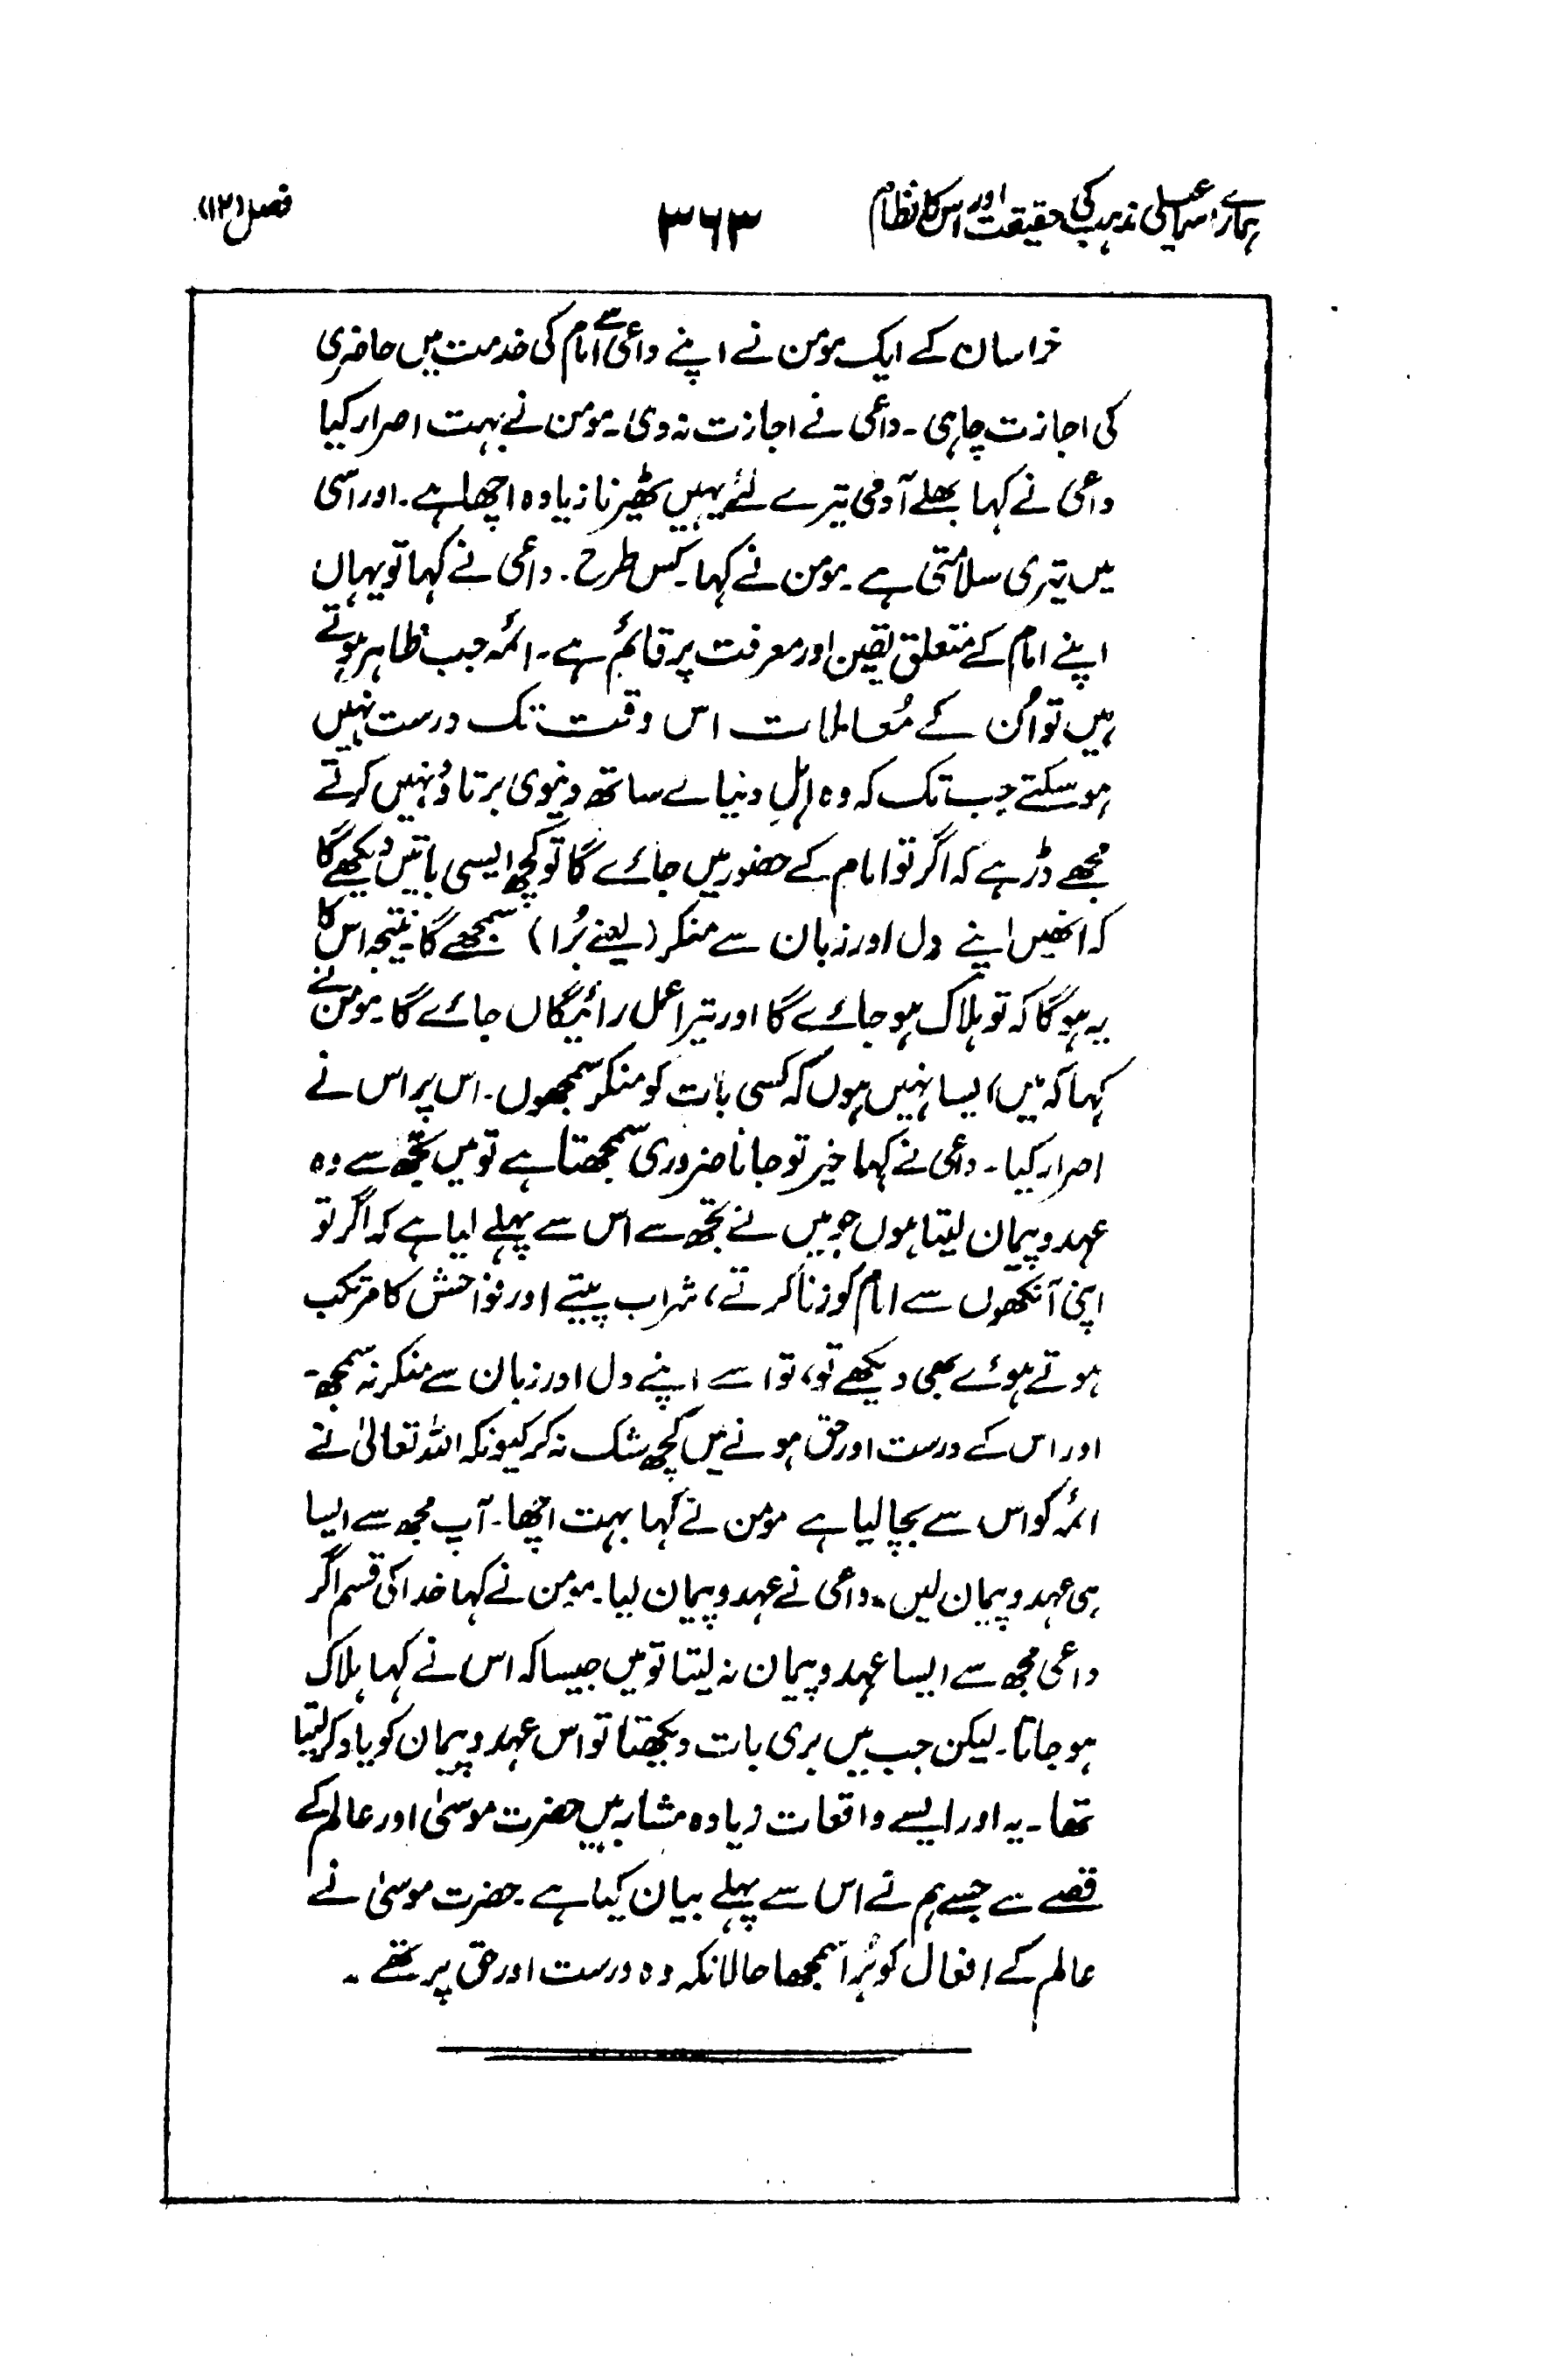 ہمارے اسماعیلی مذہب کی حقیقت اور اس کا نظام ۳۶۳ فصل (۱۲)
خراسان کے ایک مومن نے اپنے داعی سے امام کی خدمت میں حاضری
کی اجازت چاہی ۔ داعی نے اجازت نہ دی ۔ مومن نے بہت اصرار کیا
داعی نے کہا بھلے آدمی تیرے لئے یہیں ٹھیرنا زیادہ اچھا ہے ۔ اور اسی
میں تیری سلامتی ہے ۔ مومن نے کہا ۔ کس طرح ۔ داعی نے کہا تو یہاں
اپنے امام کے متعلق یقین اور معرفت پر قائم ہے ۔ ائمہ جب ظاہر ہوتے
ہیں تو اُن کے مُعاملات اس وقت تک درست نہیں
ہو سکتے جب تک کہ وہ اہلِ دنیا سے ساتھ دنیوی برتاؤ نہیں کرتے
مجھے ڈر ہے کہ اگر تو امام کے حضور میں جائے گا تو کچھ ایسی باتیں دیکھے گا
کہ انھیں اپنے دل اور زبان سے منکر (یعنے بُرا) سمجھے گا ۔ نتیجہ اس کا
یہ ہوگا کہ تو ہلاک ہو جائے گا اور تیرا عمل رائیگاں جائے گا ۔ مومن نے
کہا کہ میں ایسا نہیں ہوں کہ کسی بات کو منکر سمجھوں ۔ اس پر اس نے
اصرار کیا ۔ داعی نے کہا خیر تو جانا ضروری سمجھتا ہے تو میں تجھ سے وہ
عہد و پیمان لیتا ہوں جو میں نے تجھ سے اس سے پہلے لیا ہے کہ اگر تو
اپنی آنکھوں سے امام کو زنا کرتے ، شراب پیتے اور فواحش کا مرتکب
ہوتے ہوئے بھی دیکھے تو ، تو اسے اپنے دل اور زبان سے منکر نہ سمجھ ۔
اور اس کے درست اور حق ہونے میں کچھ شک نہ کر کیونکہ اللہ تعالیٰ نے
ائمہ کو اس سے بچا لیا ہے مومن نے کہا بہت اچھا ۔ آپ مجھ سے ایسا
ہی عہد و پیمان لیں ۔ داعی نے عہد و پیمان لیا ۔ مومن نے کہا خدا کی قسم اگر
داعی مجھ سے ایسا عہد و پیمان نہ لیتا تو میں جیسا کہ اس نے کہا ہلاک
ہو جاتا ۔ لیکن جب میں بری بات دیکھتا تو اس عہد و پیمان کو یاد کر لیتا
تھا ۔ یہ اور ایسے واقعات زیادہ مشابہ ہیں حضرت موسیٰ اور عالم کے
قصے سے جسے ہم نے اس سے پہلے بیان کیا ہے ۔ حضرت موسیٰ نے
عالم کے افعال کو بُرا سمجھا حالانکہ وہ درست اور حق پر تھے ۔